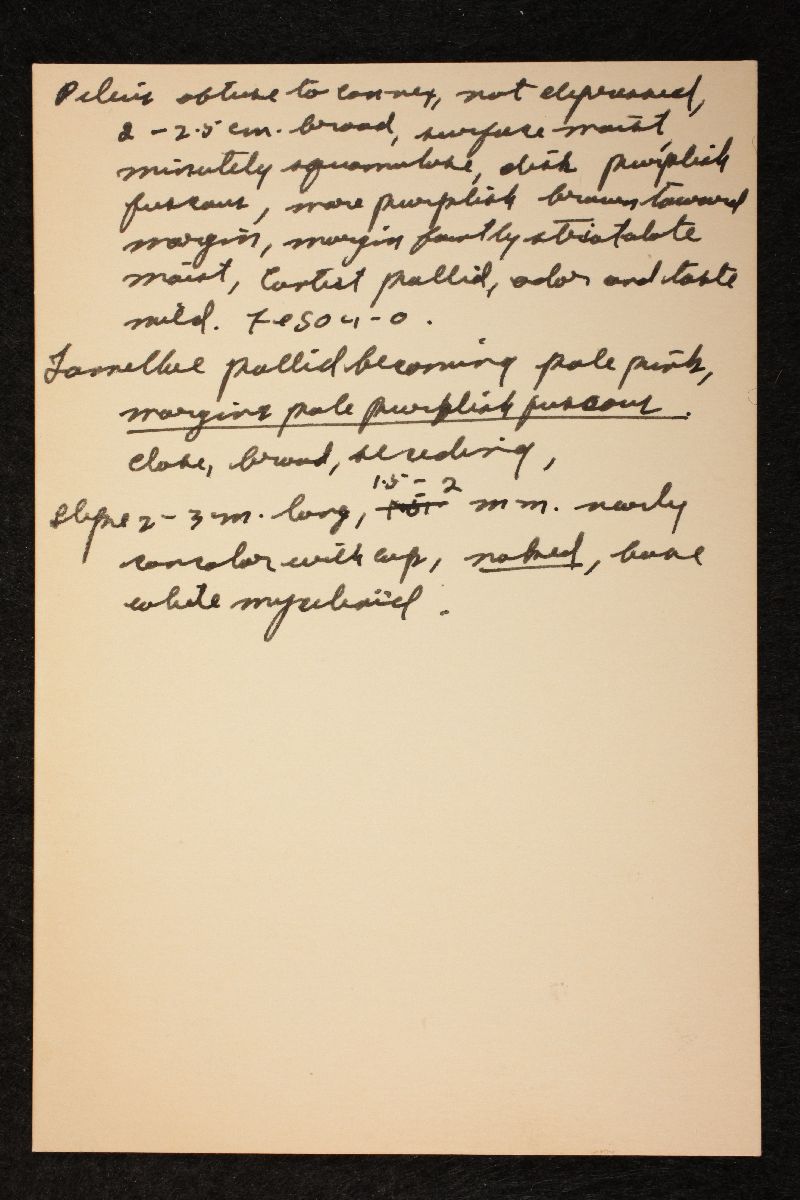 Pileus obtuse to convex, not depressed,
2 - 2.5 cm. broad, surface moist,
minutely squamulose, disk purplish
fuscous, more purplish brown toward
margin, margin faintly striatulate
moist, Context pallid, odor and taste
mild. FeSO4 - 0.
Lamellae pallid becoming pale pink,
margins pale purplish fuscous.
close, broad, seceding,
1.5 - 2
Stipe 2 - 3 cm. long, mm. nearly
concolor with cap, naked, base
white mycelioid.